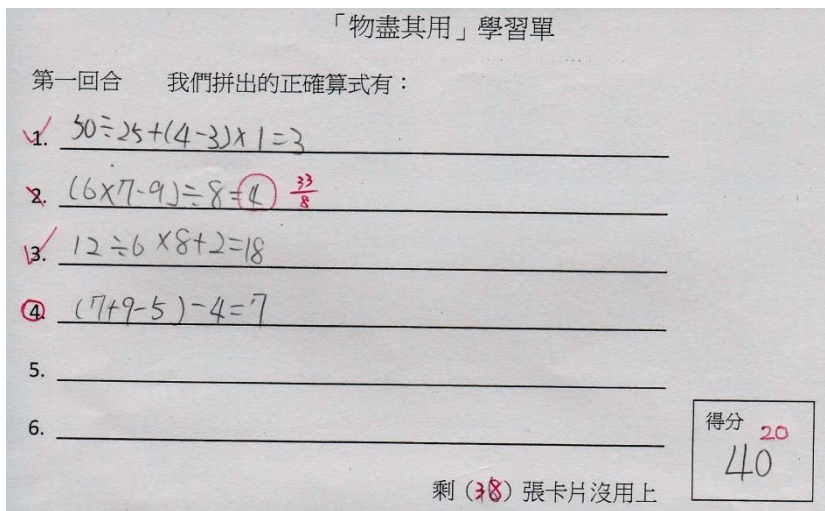 「物盡其用」學習單
第一回合 我們拼出的正確算式有:
1. 50÷25+(4-3)×1=3
2. (6×7-9)÷8=4 33/8
3. 12÷6×8+2=18
4. (7+9-5)-4=7
5.
6.
得分 20
40
剩(38)張卡片沒用上